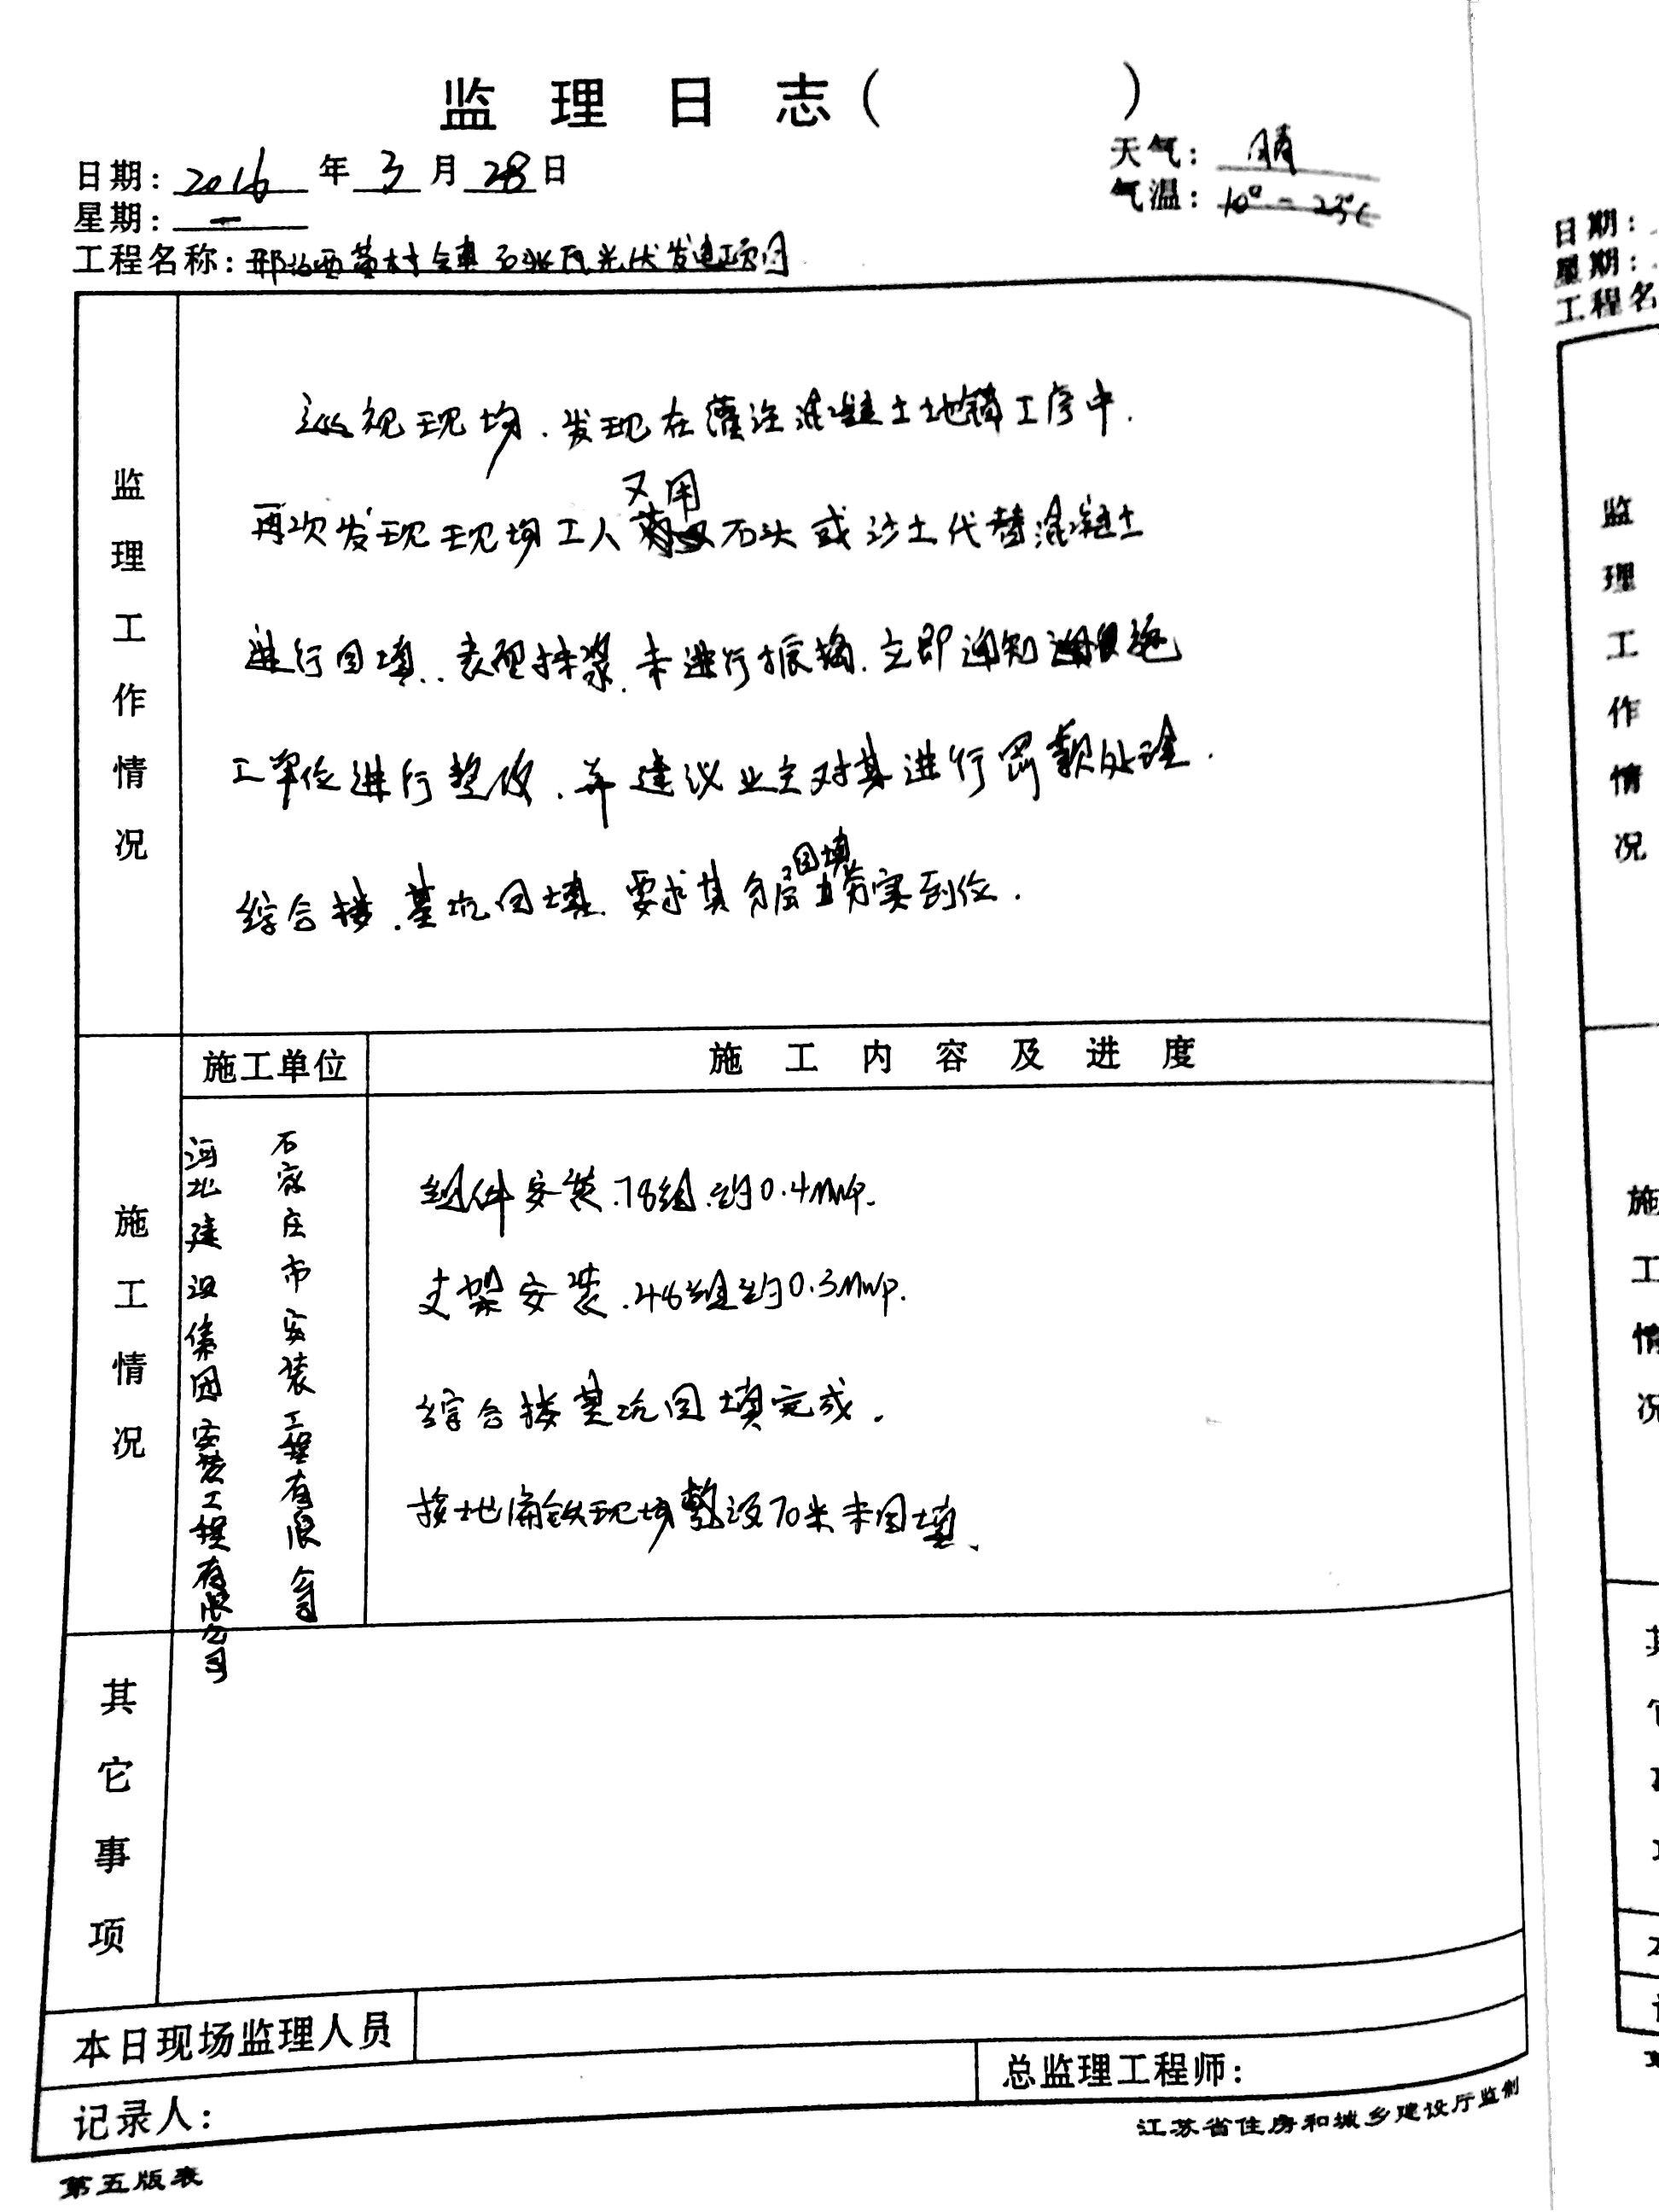 监理日志(          )
日期: 2016 年 3 月 28 日
天气: 晴
星期: 一
气温: 10° - 23℃
工程名称: 邢台西黄村镇石张瓦光伏发电项目
监理工作情况
巡视现场.发现在灌注混凝土地锚工序中.
再次发现现场工人又用石头或沙土代替混凝土
进行回填..表面抹浆.未进行振捣.立即通知施
工单位进行整改.并建议业主对其进行罚款处理.
综合楼.基坑回填.要求其分层回填夯实到位.
施工情况
施工单位
施工内容及进度
石家庄市安装工程有限公司
河北建设集团安装工程有限公司
组件安装.78组.约0.4MWP.
支架安装.48组约0.3MWP.
综合楼基坑回填完成.
接地扁铁现场敷设70米未回填.
其它事项
本日现场监理人员
记录人:
总监理工程师:
第五版表
江苏省住房和城乡建设厅监制
日期:
星期:
工程名
监理工作情况
施工情况